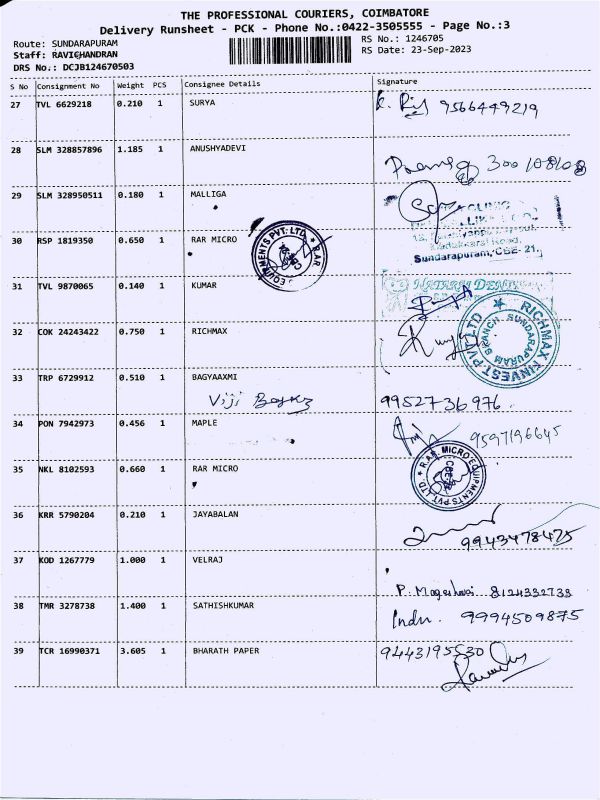 THE PROFESSIONAL COURIERS, COIMBATORE
Delivery Runsheet - PCK - Phone No.:0422-3505555 - Page No.:3
Route: SUNDARAPURAM
RS No.: 1246705
Staff: RAVICHANDRAN
RS Date: 23-Sep-2023
DRS No.: DCJB124670503
S No Consignment No Weight PCS Consignee Details Signature
27 TVL 6629218 0.210 1 SURYA 9566449219
28 SLM 328857896 1.185 1 ANUSHYADEVI
29 SLM 328950511 0.180 1 MALLIGA
Sundarapuram, CBE- 21.
30 RSP 1819350 0.650 1 RAR MICRO
31 TVL 9870065 0.140 1 KUMAR
32 COK 24243422 0.750 1 RICHMAX
RICHMAX FINVEST PVT LTD
SUNDARAPURAM BRANCH
33 TRP 6729912 0.510 1 BAGYAAXMI
Viji 9952736976.
34 PON 7942973 0.456 1 MAPLE 9597196645
35 NKL 8102593 0.660 1 RAR MICRO
RAR MICRO EQUIPMENTS PVT. LTD
36 KRR 5790204 0.210 1 JAYABALAN
9943478475
37 KOD 1267779 1.000 1 VELRAJ
P. Mageshwari 8124332733
38 TMR 3278738 1.400 1 SATHISHKUMAR Indu. 9994509875
39 TCR 16990371 3.605 1 BHARATH PAPER 9443195530